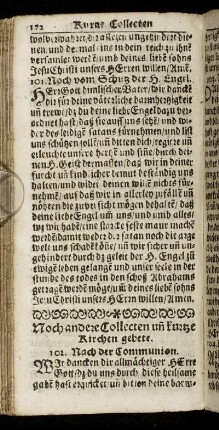 172 Kurtze Collecten
wol verwahret, die allezeit ungehindert die-
nen, und dermal eins in dein reich zu ihnē
versamlet werdē um deines liebē sohns
Jesu Christi unsers HErren willen/Amē.
101. Noch vom Schutz der H. Engel.
HErr Gott himlischer Vater/wir danckē
dir für deine väterliche barmhertzigkeit
uñ treu/dz du deine liebe Engel dazu ver-
ordnet hast dz sie auf uns sehē und wi-
der des leidigē satans fürnehmen/und list
uns schützen sollē/uñ bitten dich/regire uñ
erleuchte unsere hertzē und siñe durch dei-
nen H. Geist dermassen/daz wir in deiner
furcht uñ kindlicher demut beständig uns
halten/und wider deinen willē nichts für-
nehmē/ auf daß wir in allerley
nöhten die zuversicht mögen behaltē/ daß
deine liebe Engel um uns/und umb alles/
wz wir habē/eine starcke feste maur machē
werdē damit weder d' satan noch die arge
welt uns schadē köñe/ uñ wir sicher uñ un-
gehindert durch dz geleit der H. Engel zū
ewigē leben gelangē und unser seele in der
stunde des todes in den schoß Abrahams
getragē werdē möge/um deines liebē sohns
Jesu Christi unsers HErrn willen/Amen.
Noch andere Collecten uñ kurtze
Kirchen gebete.
102. Nach der Communion.
WIr dancken dir allmächtiger HErre
Gott/dz du uns durch diese heilsame
gabē hast erquicket/uñ bitten deine barm-